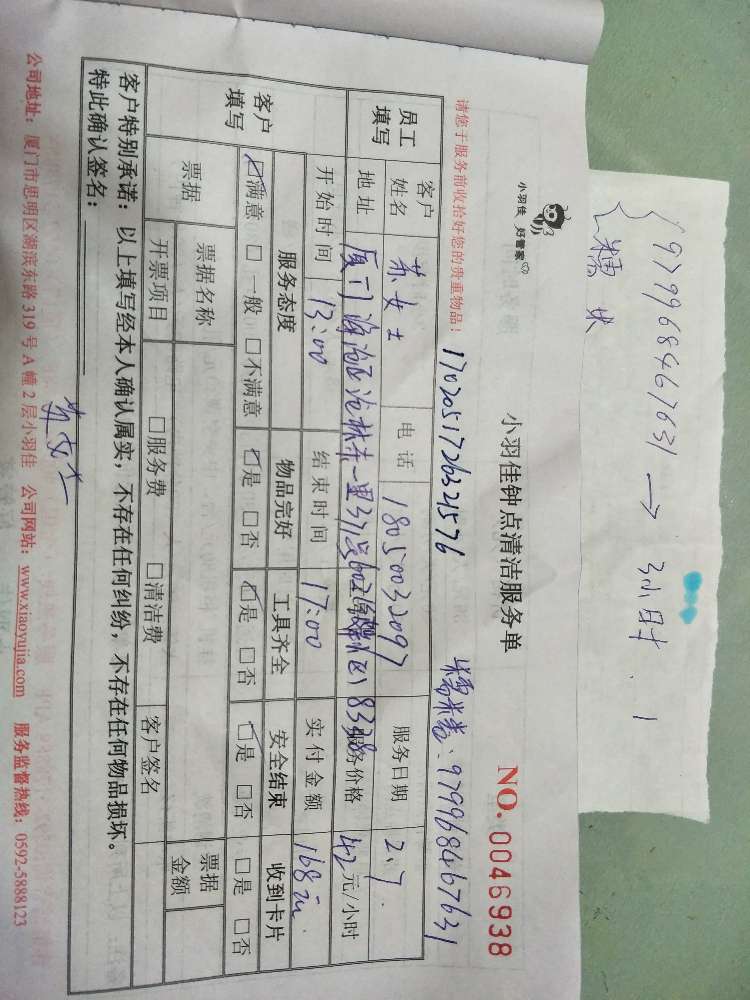 97996846763 1 → 3小时.1
糯米
小羽佳 好管家
小羽佳钟点清洁服务单
NO. 0046938
请您于服务前收拾好您的贵重物品！
170205172632 1576
糯米卷：979968467631
员工填写
客户姓名 苏女士 电话 18050032097 服务日期 2.7
地址 厦门海沧区沧林东一里371号602 8328 服务价格 42元/小时
开始时间 13:00 结束时间 17:00 实付金额 168元
客户填写
服务态度 物品完好 工具齐全 安全结束 收到卡片
☑满意 □一般 □不满意 ☑是 □否 ☑是 □否 ☑是 □否 □是 □否
票据 票据名称 票据金额
开票项目 □服务费 □清洁费 客户签名
客户特别承诺：以上填写经本人确认属实，不存在任何纠纷，不存在任何物品损坏。
特此确认签名：
苏女士
公司地址：厦门市思明区湖滨东路 319 号 A 幢 2 层小羽佳 公司网站：www.xiaoyujia.com 服务监督热线：0592-5888123